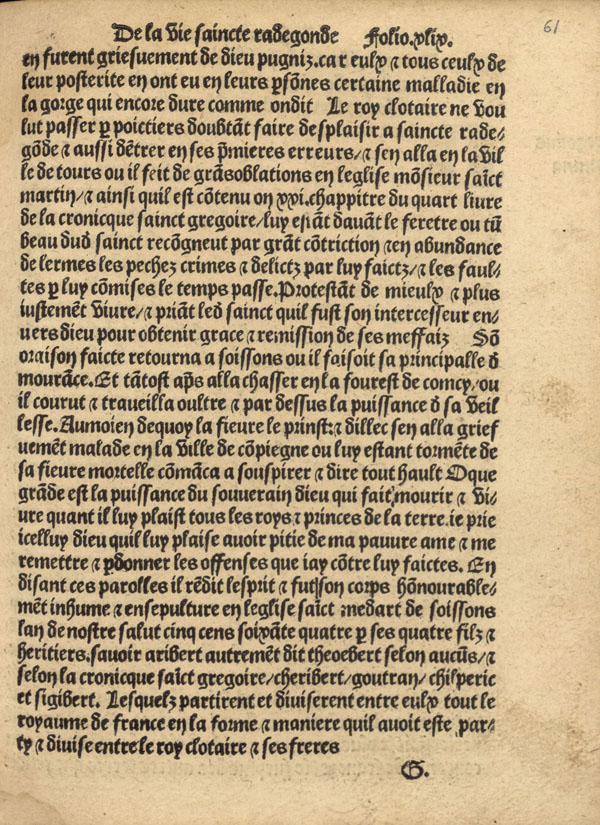 De la vie saincte radegonde Folio.xlix.
61
en furent griefuement de dieu pugniz.car eulx ⁊ tous ceulx de
leur posterite en ont eu en leurs ꝑsōnes certaine malladie en
la gorge qui encore dure comme on dit Le roy clotaire ne vou
lut passer ꝑ poictiers doubtāt faire desplaisir a saincte rade/
gōde ⁊ aussi dētrer en ses p̄mieres erreurs/⁊ sen alla en la vil
le de tours ou il feit de grās oblations en leglise mōsieur saīct
martin/⁊ ainsi quil est cōtenu on xxi.chappitre du quart liure
de la cronicque sainct gregoire/luy estāt dauāt le feretre ou tū
beau dud̄ sainct recōgneut par grāt cōtriction ⁊ en abundance
de lermes les pechez crimes ⁊ delictz par luy faictz/⁊ les faul/
tes ꝑ luy cōmises le temps passe.Protestāt de mieulx ⁊ plus
iustemēt viure/⁊ priāt led̄ sainct quil fust son intercesseur en/
uers dieu pour obtenir grace ⁊ remission de ses meffaiz Sō
oraison faicte retourna a soissons ou il faisoit sa principalle d̄
mourāce.Et tātost ap̄s alla chasser en la fourest de comcy/ou
il courut ⁊ traueilla oultre ⁊ par dessus la puissance d̄ sa veil
lesse.Aumoien dequoy la fieure le prinst:⁊ dillec sen alla grief
uemēt malade en la ville de cōpiegne ou luy estant tormēte de
sa fieure mortelle cōmāca a souspirer ⁊ dire tout hault O que
grāde est la puissance du souuerain dieu qui fait mourir ⁊ vi/
ure quant il luy plaist tous les roys ⁊ princes de la terre.ie prie
icelluy dieu quil luy plaise auoir pitie de ma pauure ame ⁊ me
remettre ⁊ ꝑdonner les offenses que iay cōtre luy faictes. En
disant ces parolles il rēdit lesprit ⁊ fut son corps hōnourable/
mēt inhume ⁊ ensepulture en leglise saīct medart de soissons
lan de nostre salut cinq cens soixāte quatre ꝑ ses quatre filz ⁊
heritiers.sauoir aribert autremēt dit theoebert selon aucūs/⁊
selon la cronicque saīct gregoire/cheribert/goutran/chilperic
et sigibert. Lesquelz partirent et diuiserent entre eulx tout le
royaume de france en la forme ⁊ maniere quil auoit este par/
ty ⁊ diuise entre le roy clotaire ⁊ ses freres
G.